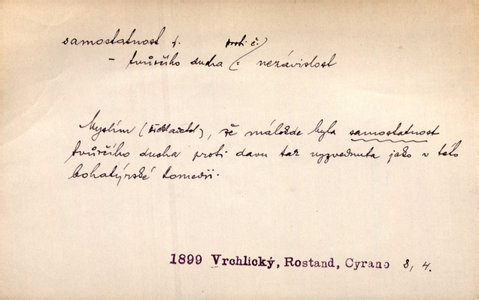 samostatnost f. proti č.
- tvůrčího ducha : nezávislost
Myslím (překladatel), že málokde byla samostatnost
tvůrčího ducha proti davu tak vyzvednuta jako v této
bohatýrské komedii.
1899 Vrchlický, Rostand, Cyrano 8, 4.